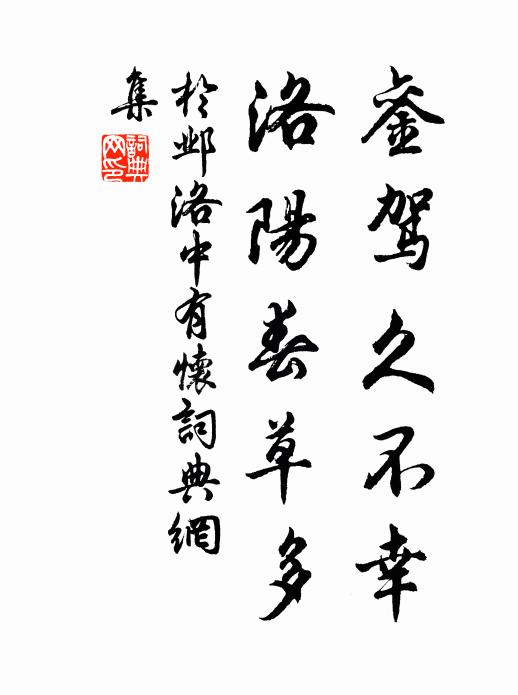 銮驾久不幸
洛陽春草多
於邺洛中有懷詞典網
集
詞典网印